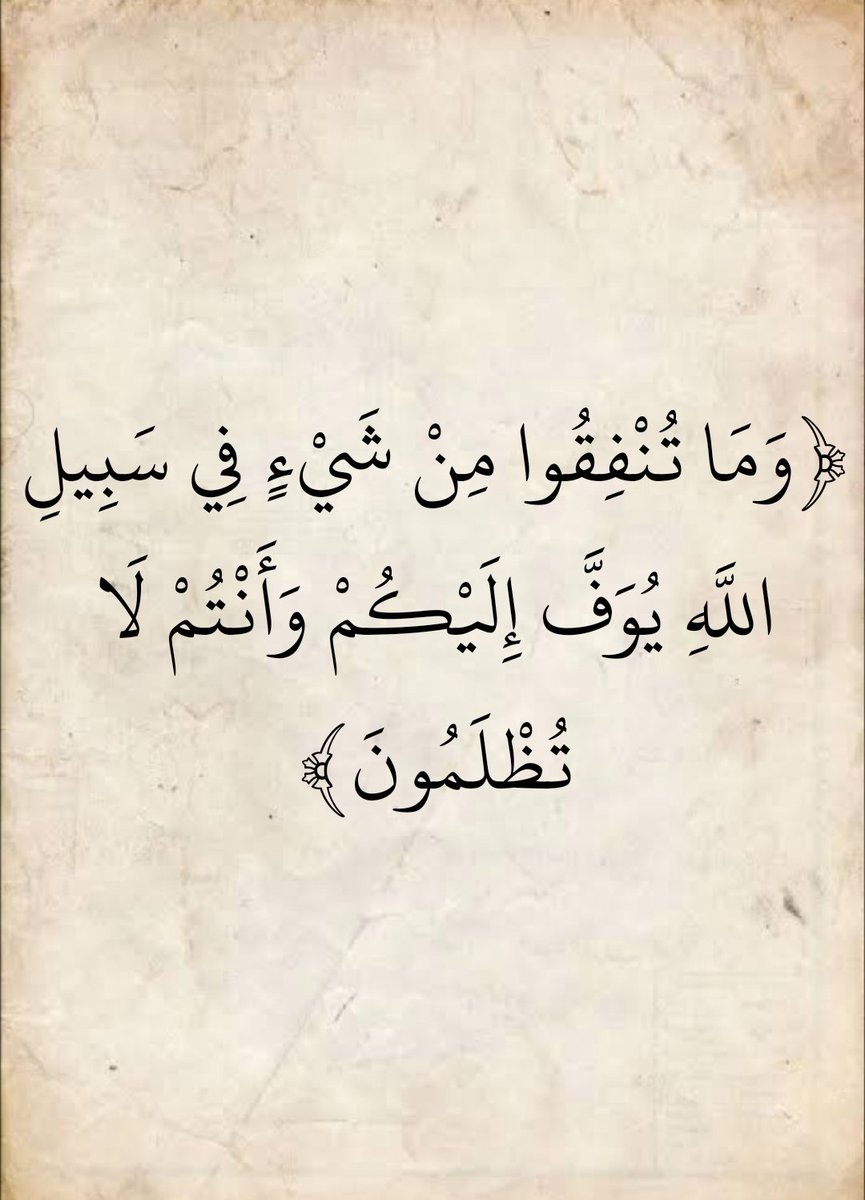 ﴿وَمَا تُنْفِقُوا مِنْ شَيْءٍ فِي سَبِيلِ
اللَّهِ يُوَفَّ إِلَيْكُمْ وَأَنْتُمْ لَا
تُظْلَمُونَ﴾